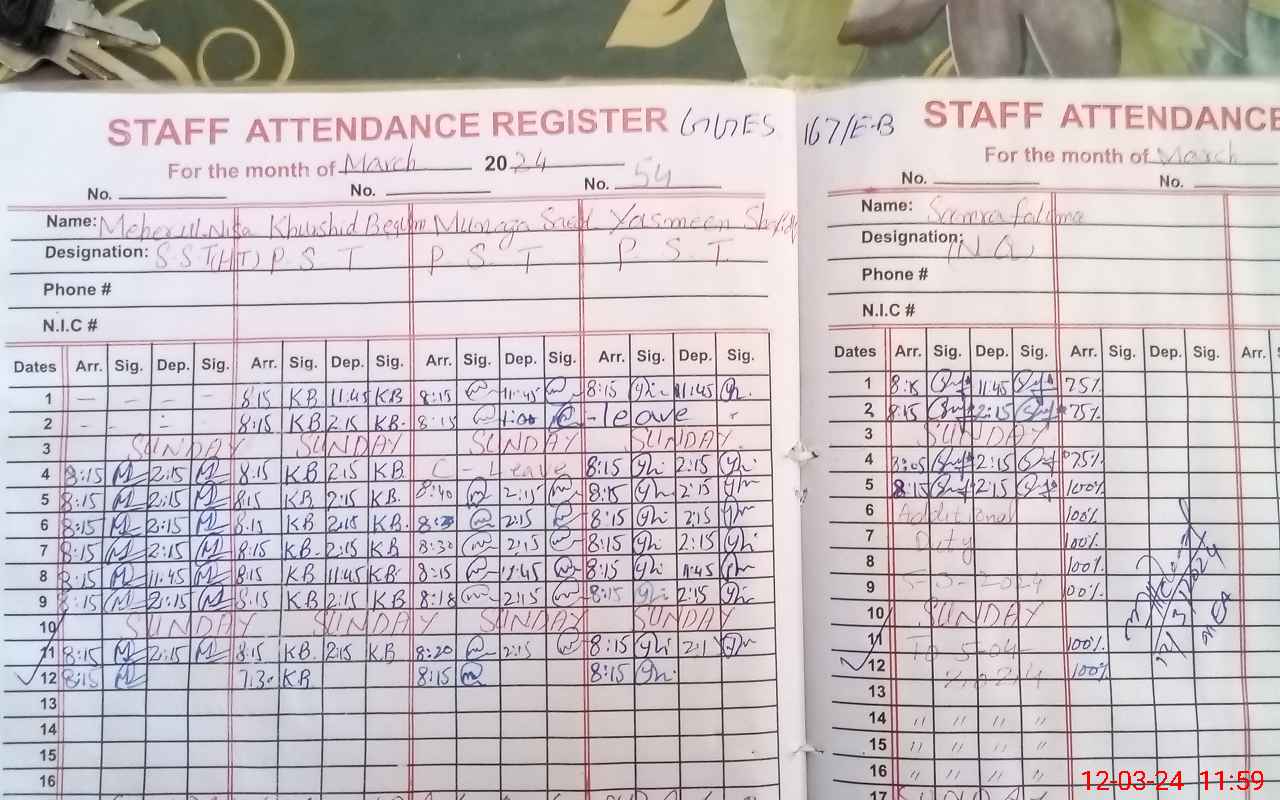 STAFF ATTENDANCE REGISTER GGES 167/E-B
For the month of March 2024
No. No. No. 54
Name: Meherul-Nisa Khurshid Begum Munaza Saeed Yasmeen
Designation: S S T(HT) P S T P. S. T P. S. T.
Phone #
N.I.C #
Dates Arr. Sig. Dep. Sig. Arr. Sig. Dep. Sig. Arr. Sig. Dep. Sig. Arr. Sig. Dep. Sig.
1 - - - - 8:15 KB 11:45 KB 8:15 11:45 8:15 11:45
2 - - - - 8:15 KB 2:15 KB. 8:15 1:00 - leave
3 SUNDAY SUNDAY SUNDAY SUNDAY
4 8:15 2:15 8:15 KB 2:15 KB. C - Leave 8:15 2:15
5 8:15 2:15 8:15 KB 2:15 KB. 8:40 2:15 8:15 2:15
6 8:15 2:15 8:15 KB 2:15 KB. 2:15 8:15 2:15
7 8:15 2:15 8:15 KB. 2:15 KB. 8:30 2:15 8:15 2:15
8 8:15 11:45 8:15 KB 11:45 KB. 8:15 11:45 8:15 11:45
9 8:15 2:15 8:15 KB 2:15 KB 8:18 2:15 8:15 2:15
10 SUNDAY SUNDAY SUNDAY SUNDAY
11 8:15 2:15 8:15 KB. 2:15 KB 8:20 2:15 8:15 2:1
12 8:15 7:30 KB. 8:15 8:15
13
14
15
16
STAFF ATTENDANCE
For the month of March
No. No.
Name: Samra fatima
Designation: (N.Q)
Phone #
N.I.C #
Dates Arr. Sig. Dep. Sig. Arr. Sig. Dep. Sig. Arr.
1 8:15 11:45 75%
2 8:15 2:15 75%
3 SUNDAY
4 8:05 2:15 75%
5 8:15 2:15 100%
6 Additional 100%
7 Duty 100%
8 100%
9 5-3-2024 100%
10 SUNDAY
11 To 5-04- 100%
12 2024 100%
13
14 " " " "
15 " " " "
16 " " " "
17 SUNDAY
12/3/2024
MEA
12-03-24 11:59